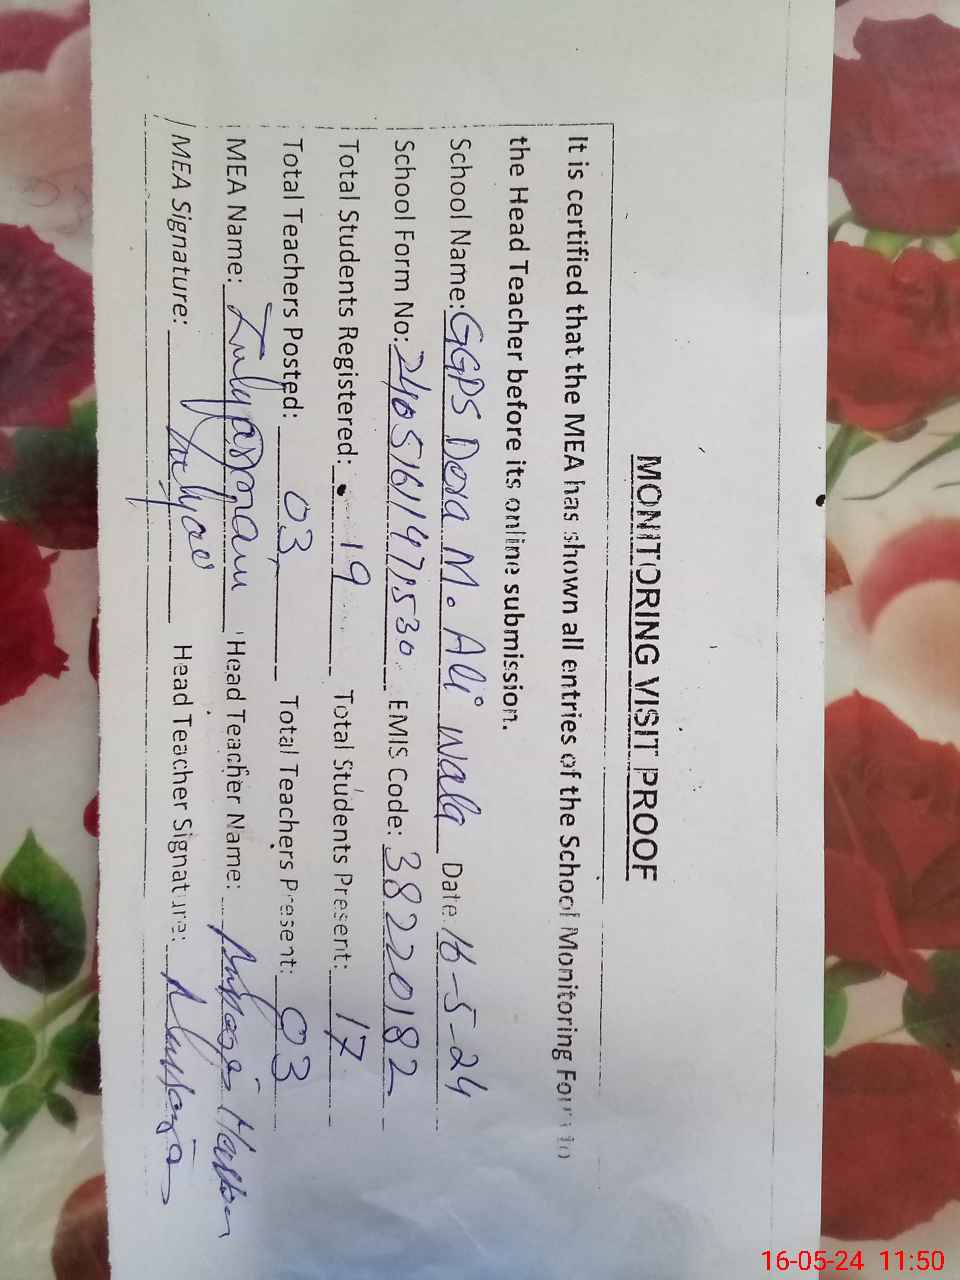 MONITORING VISIT PROOF
It is certified that the MEA has shown all entries of the School Monitoring Form to
the Head Teacher before its online submission.
School Name: GGPS Dera M. Ali Wala Date: 16-5-24
School Form No: EMIS Code: 38220182
Total Students Registered: 19 Total Students Present: 17
Total Teachers Posted: 03 Total Teachers Present: 03
MEA Name: Head Teacher Name:
MEA Signature: Head Teacher Signature:
16-05-24 11:50